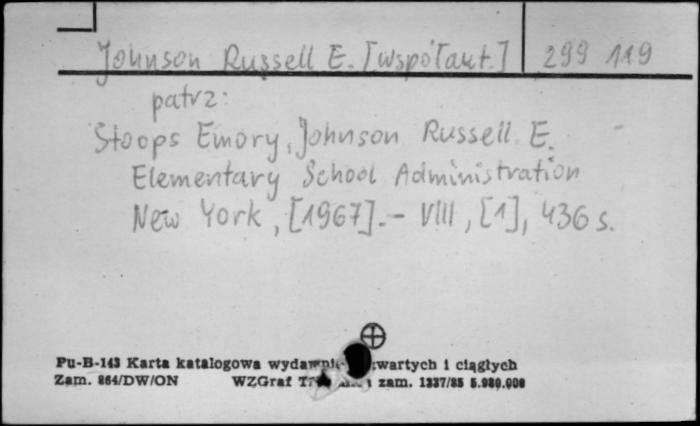 Johnson Russell E. [współaut.] 299 119
patrz:
Stoops Emory, Johnson Russell E.
Elementary School Administration
New York, [1967].- VIII, [1], 436 s.
Pu-B-143 Karta katalogowa wartych i ciągłych
Zam. 864/DW/ON WZGraf zam. 1337/85 5.980.000